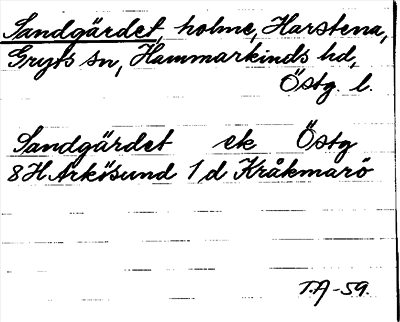 Sandgärdet, holme, Harstena,
Gryts sn, Hammarkinds hd,
Östg. l.
Sandgärdet ek Östg
8H Arkösund 1d Kråkmarö
T.A-59.